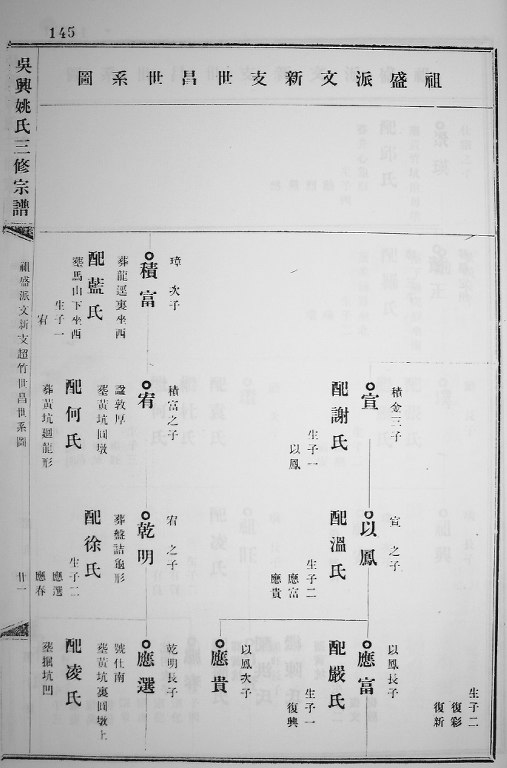 145
祖盛派文新支世昌世系圖
吳興姚氏三修宗譜
祖盛派文新支超竹世昌世系圖
廿一
積金三子
宣
配謝氏
生子一
以鳳
宣之子
以鳳
配溫氏
生子二
應富
應貴
生子二
復彩
復新
以鳳長子
應富
配嚴氏
生子一
復興
以鳳次子
應貴
璋次子
積富
葬龍逕裏坐西
配藍氏
葬馬山下坐西
生子一
宥
積富之子
宥
諡敦厚
葬黃坑回墩
配何氏
葬黃坑迴龍形
宥之子
乾明
葬盤詰龜形
配徐氏
生子二
應選
應春
乾明長子
應選
號仕南
葬黃坑裏回墩上
配凌氏
坑凹